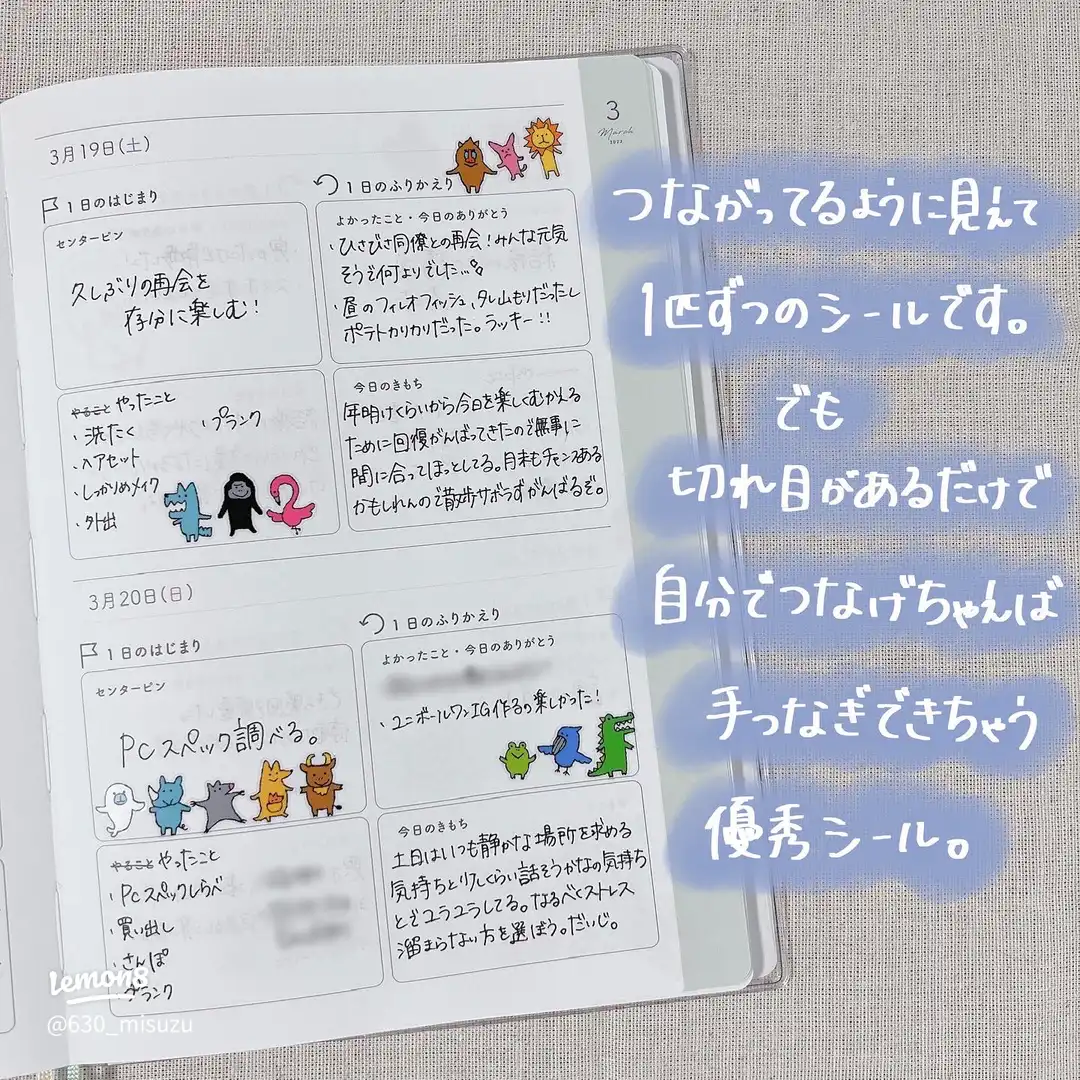 3
March
2022
3月19日(土)
1日のはじまり
センターピン
久しぶりの再会を
存分に楽しむ!
やること やったこと
・洗たく
・ヘアセット
・しっかりめメイク
・外出
・プランク
1日のふりかえり
よかったこと・今日のありがとう
・ひさびさ同僚との再会!みんな元気
そうで何よりでした…
・昼のフィレオフィッシュ、タレ山もりだったし
ポテトカリカリだった。ラッキー!!
今日のきもち
年明けくらいから今日を楽しくむかえる
ために回復がんばってきたので無事に
間に合ってほっとしてる。月末もチャンスある
かもしれんので散歩サボらずがんばるぞ。
3月20日(日)
1日のはじまり
センターピン
PCスペック調べる。
やること やったこと
・PCスペックしらべ
・買い出し
・さんぽ
・プランク
1日のふりかえり
よかったこと・今日のありがとう
・ユニボールワンIG作るの楽しかった!
今日のきもち
土日はいつも静かな場所を求める
気持ちとりくらい話そうかなの気持ち
とでユラユラしてる。なるべくストレス
溜まらない方を選ぼう。だいじ。
つながってるように見えて
1匹ずつのシールです。
でも
切れ目があるだけで
自分でつなげちゃえば
手つなぎできちゃう
優秀シール。
lemon8
@630_misuzu